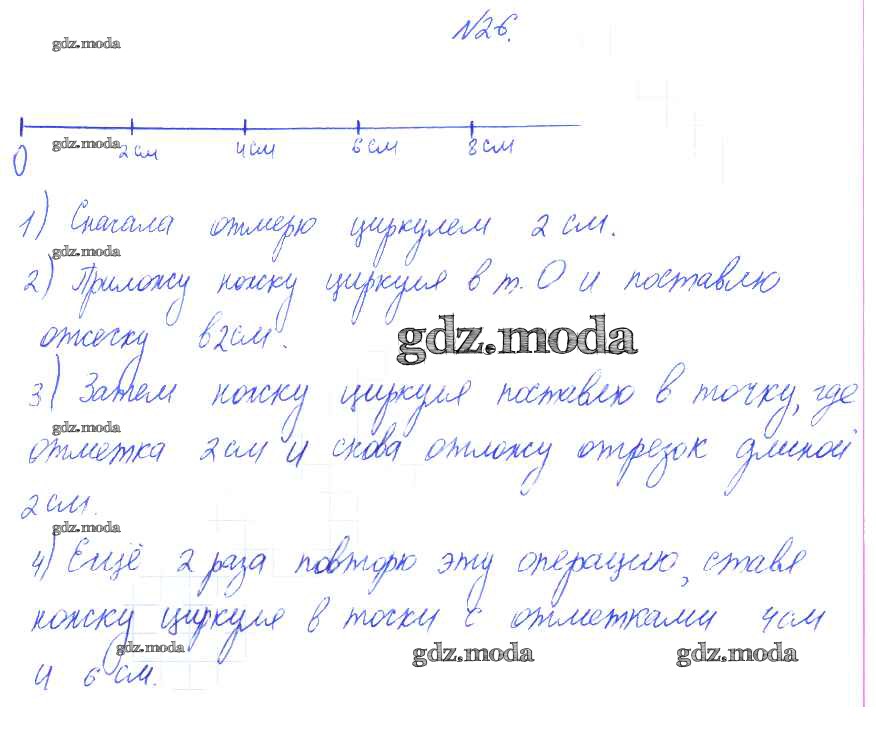 №26.
gdz.moda
0 2см 4см 6см 8см
gdz.moda
1) Сначала отмерю циркулем 2 см.
gdz.moda
2) Приложу ножку циркуля в т. О и поставлю
отсечку в 2см.
gdz.moda
3) Затем ножку циркуля поставлю в точку, где
gdz.moda
отметка 2см и снова отложу отрезок длиной
2см.
gdz.moda
4) Ещё 2 раза повторю эту операцию, ставя
ножку циркуля в точки с отметками 4см
gdz.moda gdz.moda gdz.moda
и 6см.